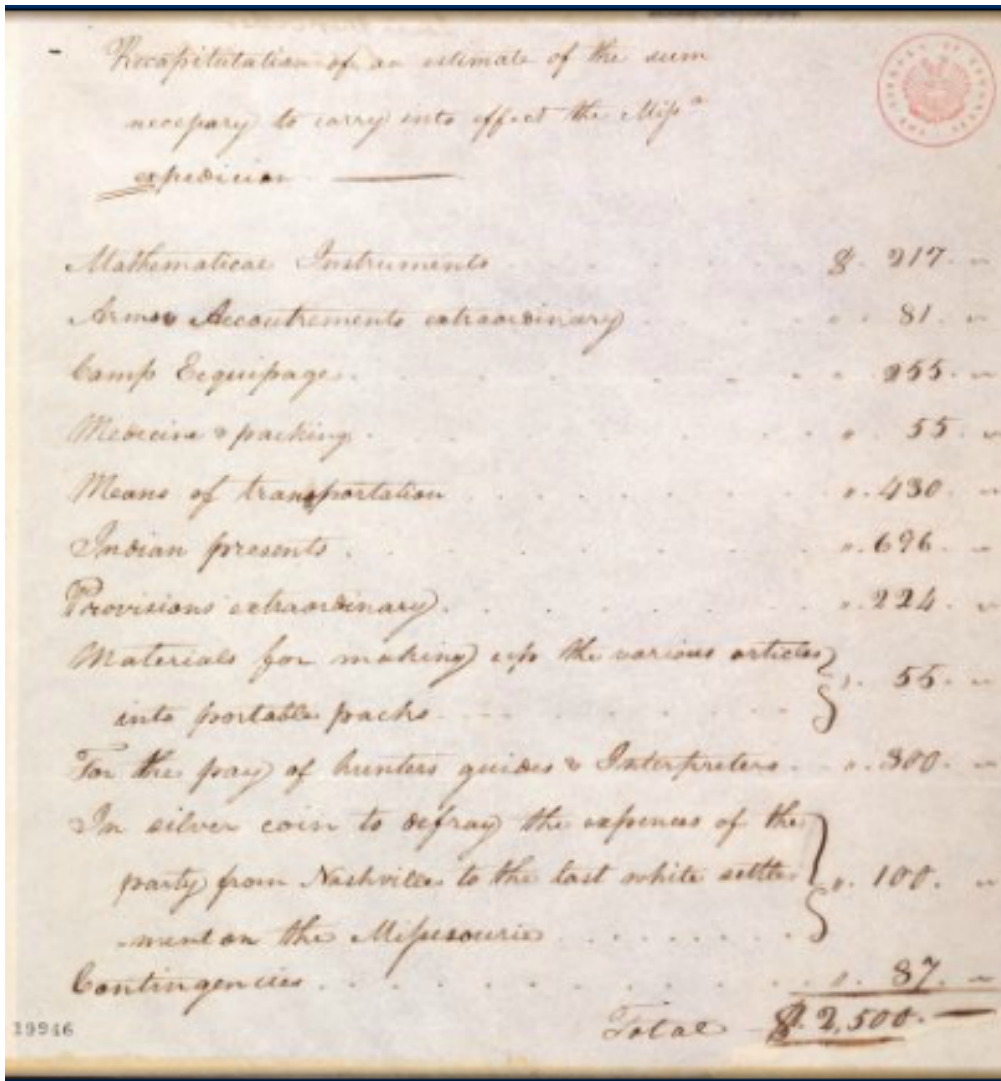 Recapitulation of an estimate of the sum
necessary to carry into effect the Miss.ie
expedicion
Mathematical Instruments $. 217.
Arms & Accoutrements extraordinary ". 81.
Camp Ecquipage ". 255.
Medecine & packing ". 55.
Means of transportation ". 430.
Indian presents ". 696.
Provisions extraordinary ". 224.
Materials for making up the various articles
into portable packs ". 55.
For the pay of hunters guides & Interpreters ". 300.
In silver coin to defray the expences of the
party from Nashville to the last white settle
-ment on the Missesourie ". 100.
Contingencies ". 87.
Total $ 2,500.
19946